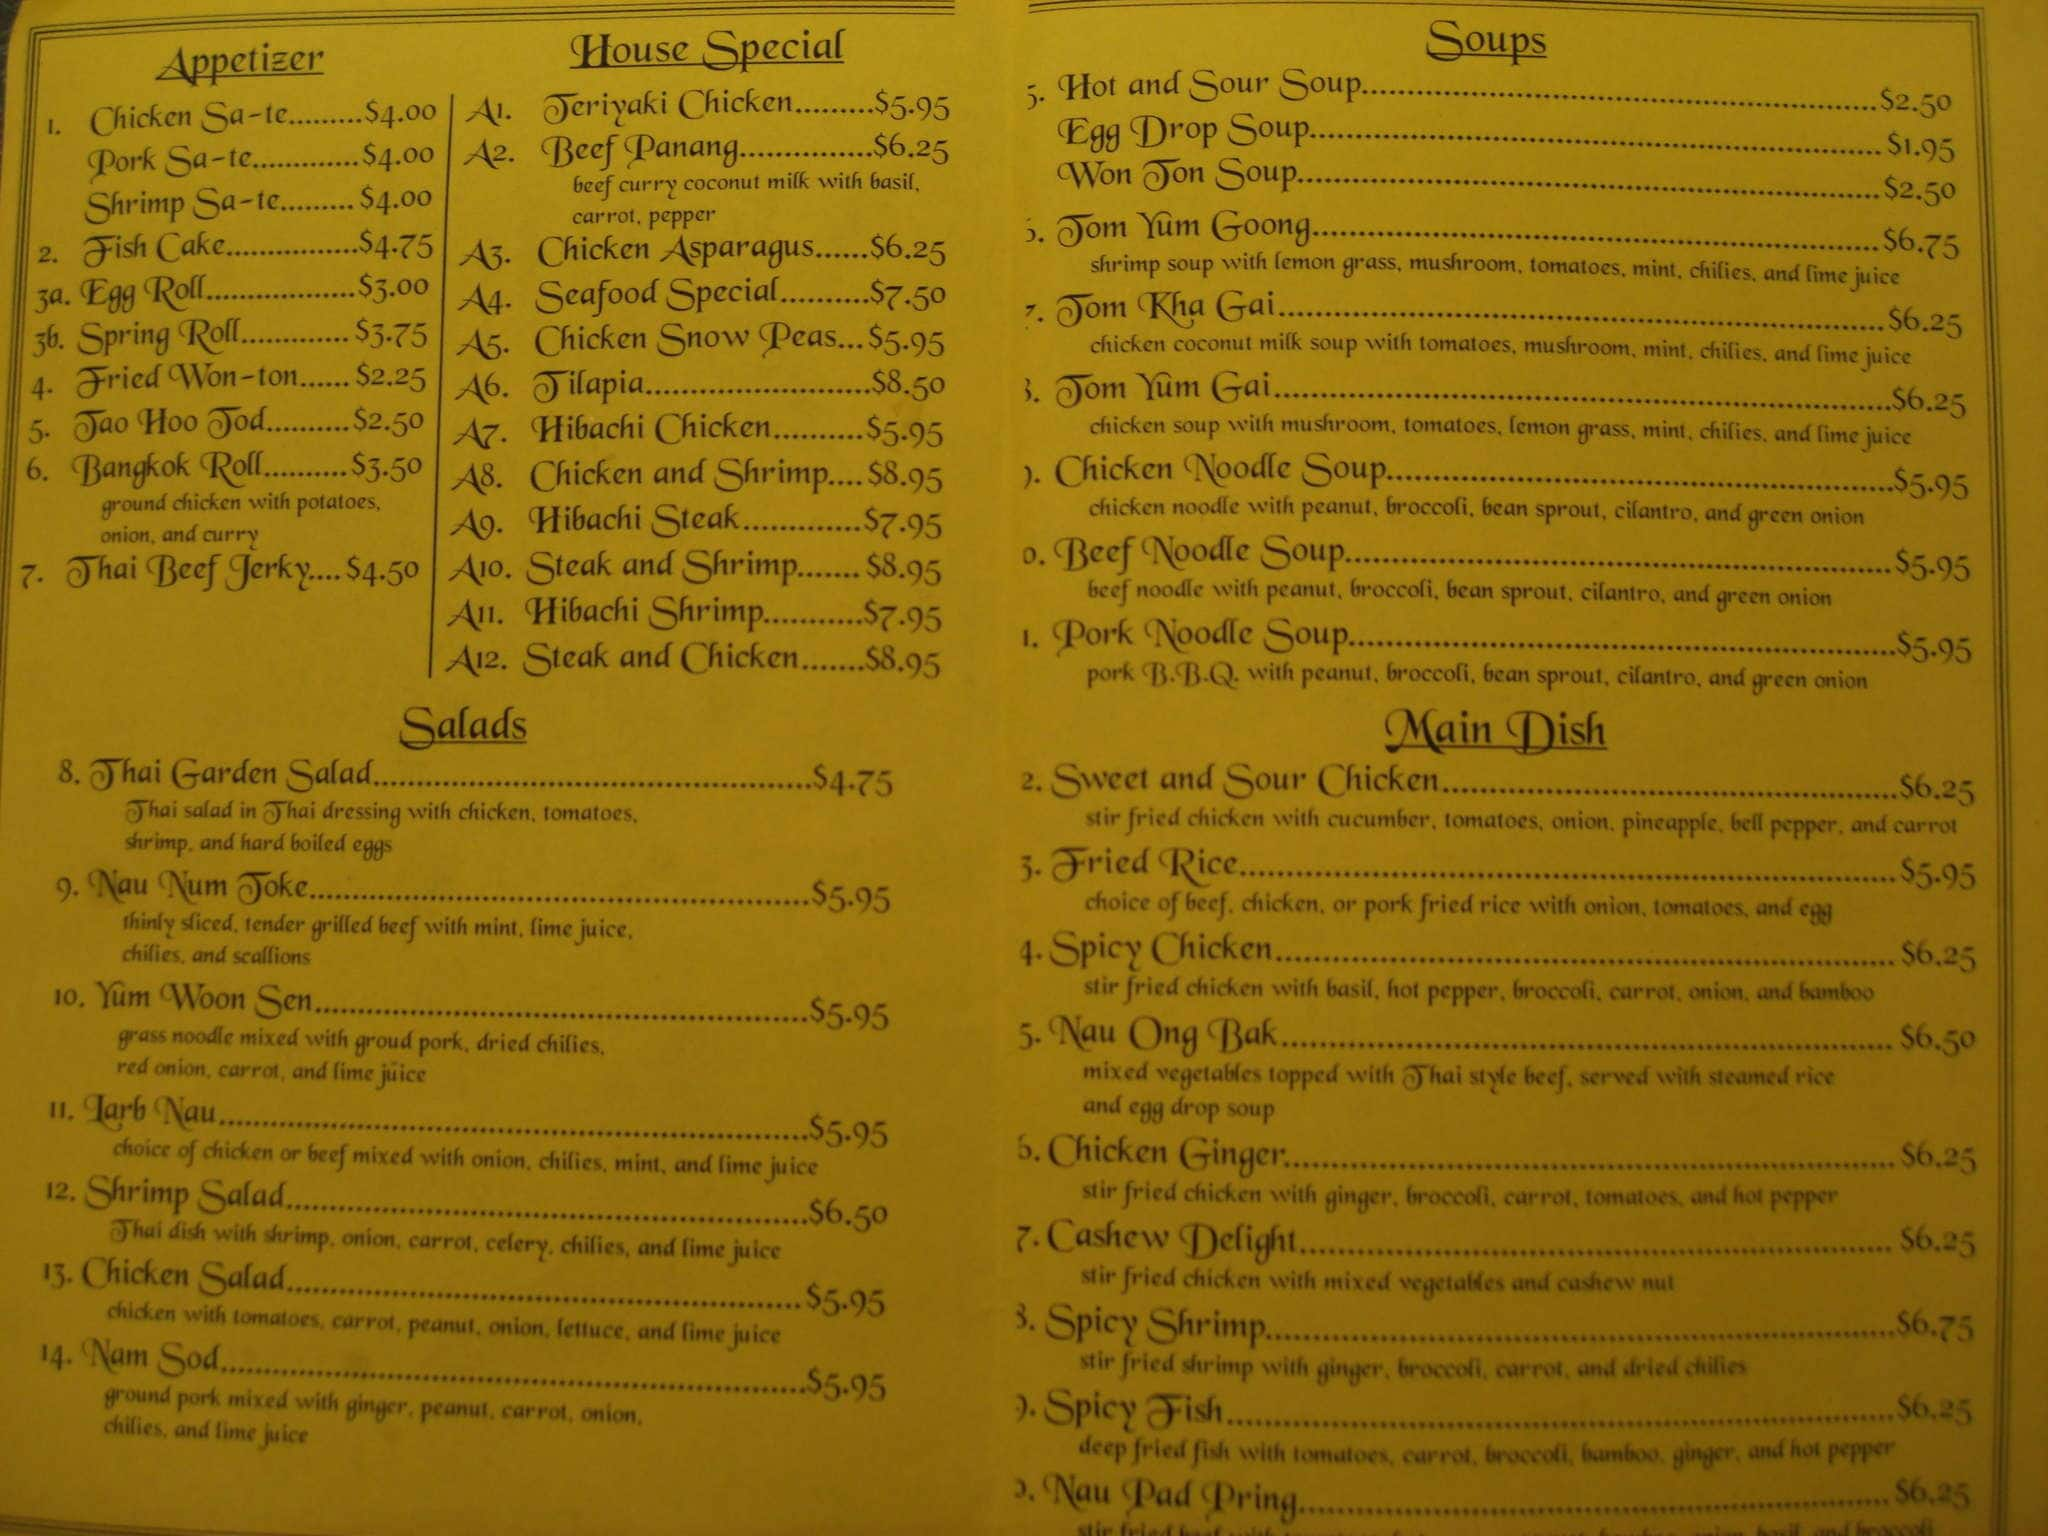 Appetizer
1. Chicken Sa-te.........$4.00
Pork Sa-te.............$4.00
Shrimp Sa-te.........$4.00
2. Fish Cake................$4.75
3a. Egg Roll..................$3.00
3b. Spring Roll.............$3.75
4. Fried Won-ton......$2.25
5. Tao Hoo Tod..........$2.50
6. Bangkok Roll..........$3.50
ground chicken with potatoes,
onion, and curry
7. Thai Beef Jerky....$4.50
House Special
A1. Teriyaki Chicken.........$5.95
A2. Beef Panang................$6.25
beef curry coconut milk with basil,
carrot, pepper
A3. Chicken Asparagus......$6.25
A4. Seafood Special..........$7.50
A5. Chicken Snow Peas...$5.95
A6. Tilapia...........................$8.50
A7. Hibachi Chicken..........$5.95
A8. Chicken and Shrimp....$8.95
A9. Hibachi Steak..............$7.95
A10. Steak and Shrimp.......$8.95
A11. Hibachi Shrimp............$7.95
A12. Steak and Chicken.......$8.95
Salads
8. Thai Garden Salad......................................................$4.75
Thai salad in Thai dressing with chicken, tomatoes,
shrimp, and hard boiled eggs
9. Nau Num Toke..............................................................$5.95
thinly sliced, tender grilled beef with mint, lime juice,
chilies, and scallions
10. Yum Woon Sen.............................................................$5.95
grass noodle mixed with groud pork, dried chilies,
red onion, carrot, and lime juice
11. Larb Nau.........................................................................$5.95
choice of chicken or beef mixed with onion, chilies, mint, and lime juice
12. Shrimp Salad................................................................$6.50
Thai dish with shrimp, onion, carrot, celery, chilies, and lime juice
13. Chicken Salad................................................................$5.95
chicken with tomatoes, carrot, peanut, onion, lettuce, and lime juice
14. Nam Sod.........................................................................$5.95
ground pork mixed with ginger, peanut, carrot, onion,
chilies, and lime juice
Soups
5. Hot and Sour Soup................................................................$2.50
Egg Drop Soup.......................................................................$1.95
Won Ton Soup........................................................................$2.50
Tom Yum Goong.......................................................................$6.75
shrimp soup with lemon grass, mushroom, tomatoes, mint, chilies, and lime juice
7. Tom Kha Gai...........................................................................$6.25
chicken coconut milk soup with tomatoes, mushroom, mint, chilies, and lime juice
Tom Yum Gai............................................................................$6.25
chicken soup with mushroom, tomatoes, lemon grass, mint, chilies, and lime juice
Chicken Noodle Soup..............................................................$5.95
chicken noodle with peanut, broccoli, bean sprout, cilantro, and green onion
0. Beef Noodle Soup...................................................................$5.95
beef noodle with peanut, broccoli, bean sprout, cilantro, and green onion
1. Pork Noodle Soup...................................................................$5.95
pork B.B.Q. with peanut, broccoli, bean sprout, cilantro, and green onion
Main Dish
2. Sweet and Sour Chicken.........................................................$6.25
stir fried chicken with cucumber, tomatoes, onion, pineapple, bell pepper, and carrot
3. Fried Rice................................................................................$5.95
choice of beef, chicken, or pork fried rice with onion, tomatoes, and egg
4. Spicy Chicken............................................................................$6.25
stir fried chicken with basil, hot pepper, broccoli, carrot, onion, and bamboo
5. Nau Ong Bak...........................................................................$6.50
mixed vegetables topped with Thai style beef, served with steamed rice
and egg drop soup
6. Chicken Ginger..........................................................................$6.25
stir fried chicken with ginger, broccoli, carrot, tomatoes, and hot pepper
7. Cashew Delight.........................................................................$6.25
stir fried chicken with mixed vegetables and cashew nut
8. Spicy Shrimp.............................................................................$6.75
stir fried shrimp with ginger, broccoli, carrot, and dried chilies
9. Spicy Fish..................................................................................$6.25
deep fried fish with tomatoes, carrot, broccoli, bamboo, ginger, and hot pepper
Nau Pad Pring..........................................................................$6.25